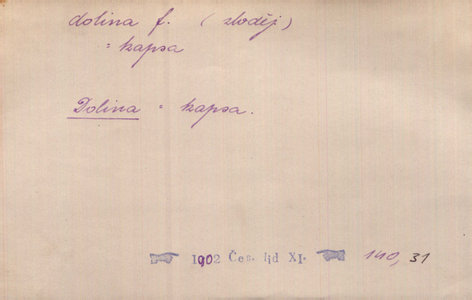 dolina f. (zloději)
= kapsa
Dolina = kapsa.
1902 Čes. lid XI. 140, 31